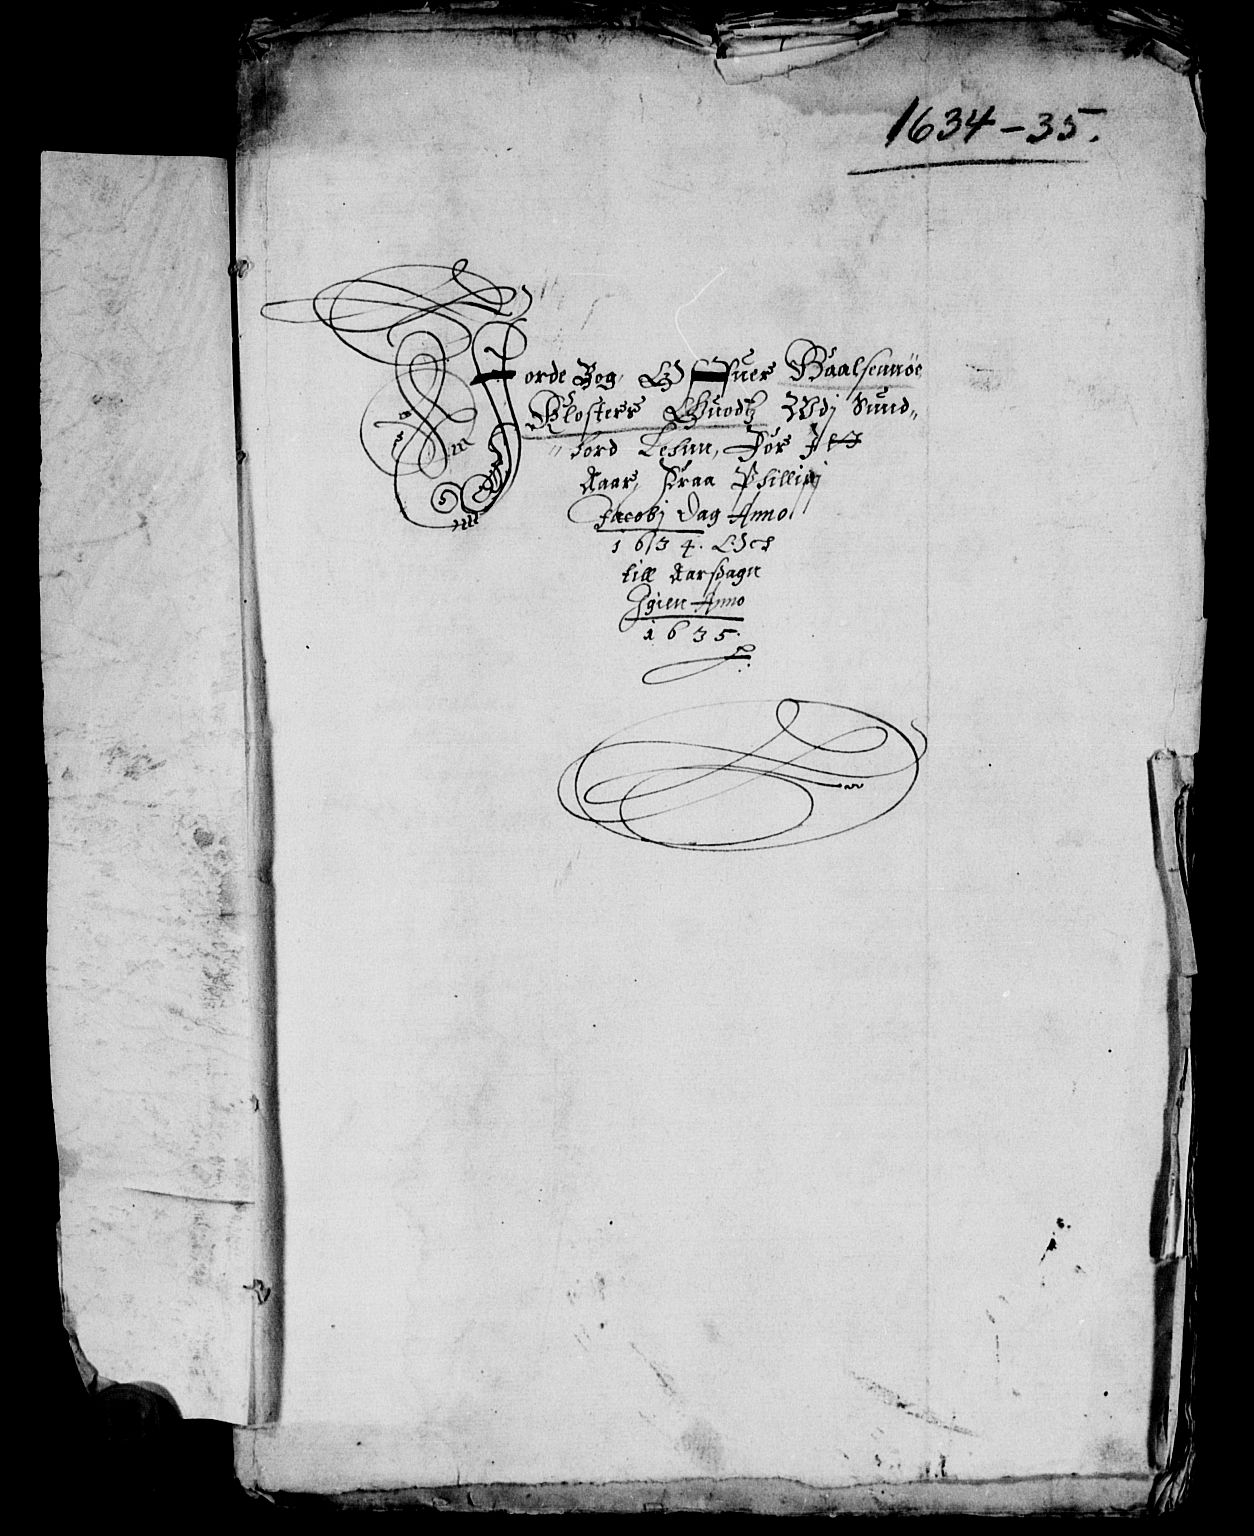 1634-35.
Jorde Bog, Offuer Baalsennöe
Klosters Guodtz Udj Sund„
„ hord Lehnn, For Jtt
Aaar, Fraa Phillipj
Jacobj Dag Anno
1634. Och
till Aarßdagn
Jgien Anno
1635.